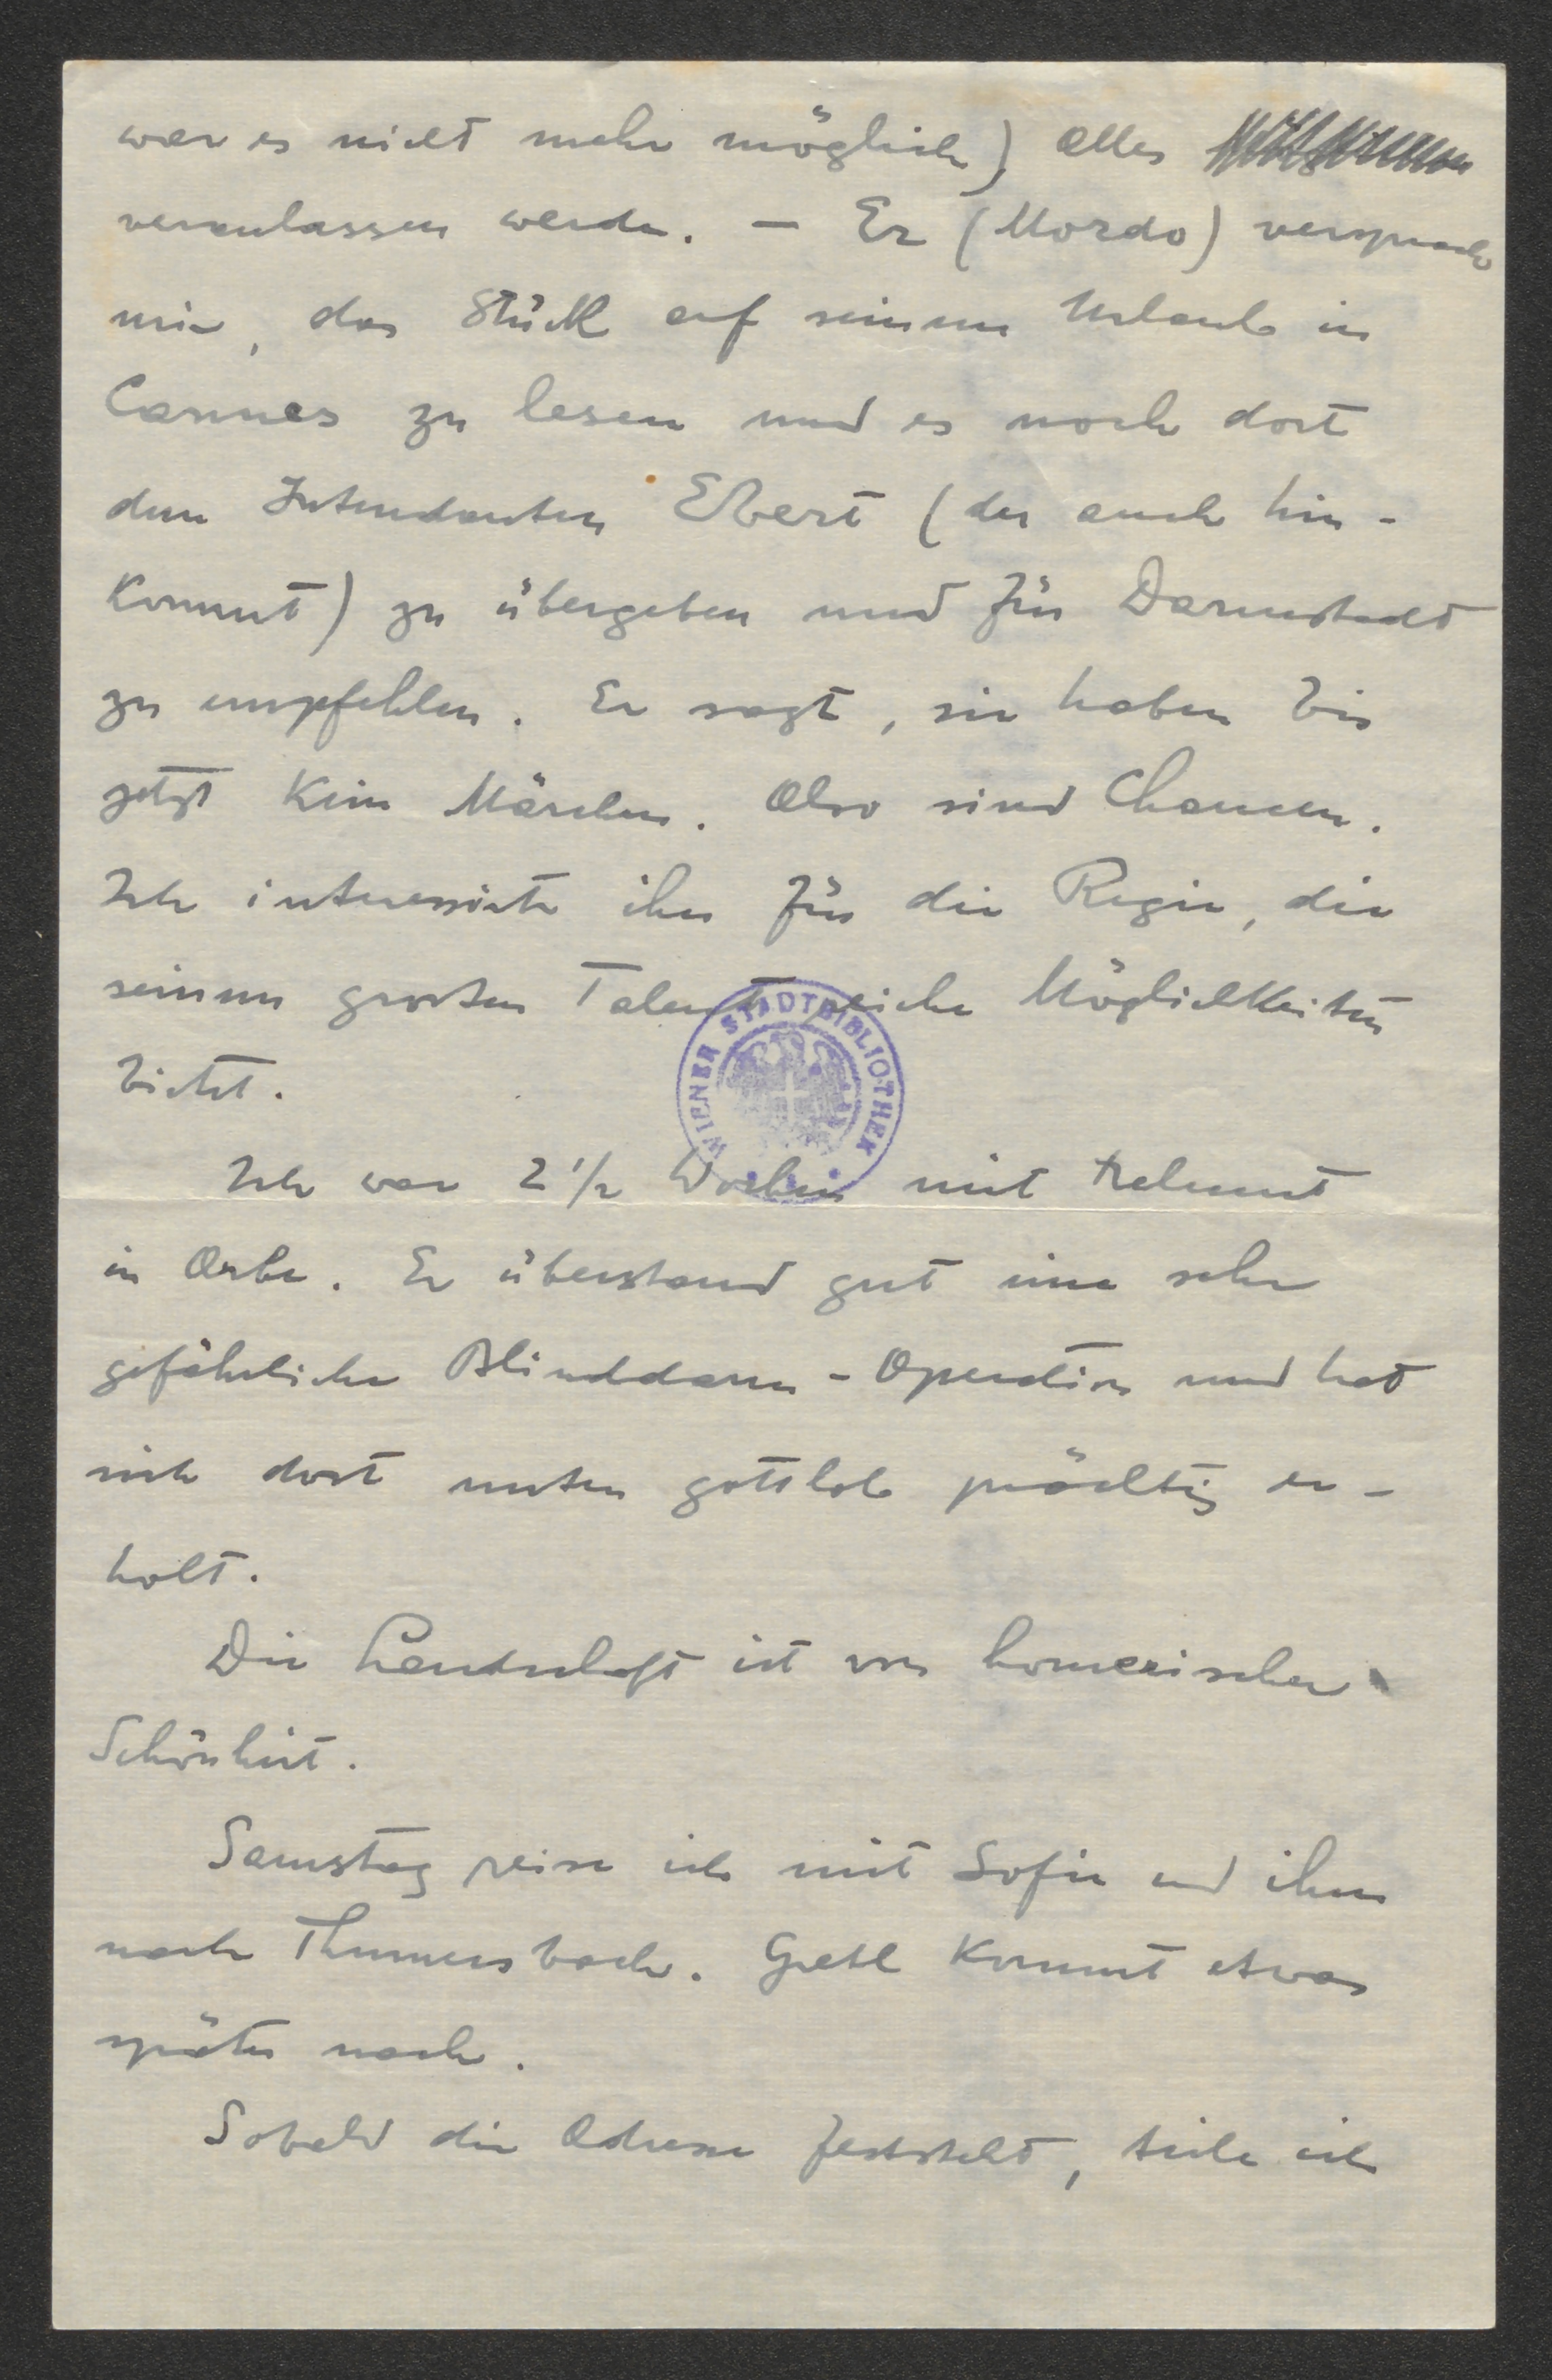 war es nicht mehr möglich) alles
veranlassen werde. — Er (Mordo) versprach
mir, das Stück auf seinem Urlaub in
Cannes zu lesen und es noch dort
dem Intendanten Ebert (der auch hin-
kommt) zu übergeben und für Darmstadt
zu empfehlen. Er sagt, sie haben bis
jetzt kein Märchen. Also sind Chancen.
Ich interessierte ihn für die Regie, die
seinem grossen Talent reiche Möglichkeiten
bietet.
WIENER STADTBIBLIOTHEK
Ich war 2 1/2 Wochen mit Helmut
in Arbe. Er überstand gut eine sehr
gefährliche Blinddarm-Operation und hat
sich dort unten gottlob prächtig er-
holt.
Die Landschaft ist von homerischer
Schönheit.
Samstag reise ich mit Sofie und ihm
nach Thumersbach. Gretl kommt etwas
später nach.
Sobald die Adresse feststeht, teile ich